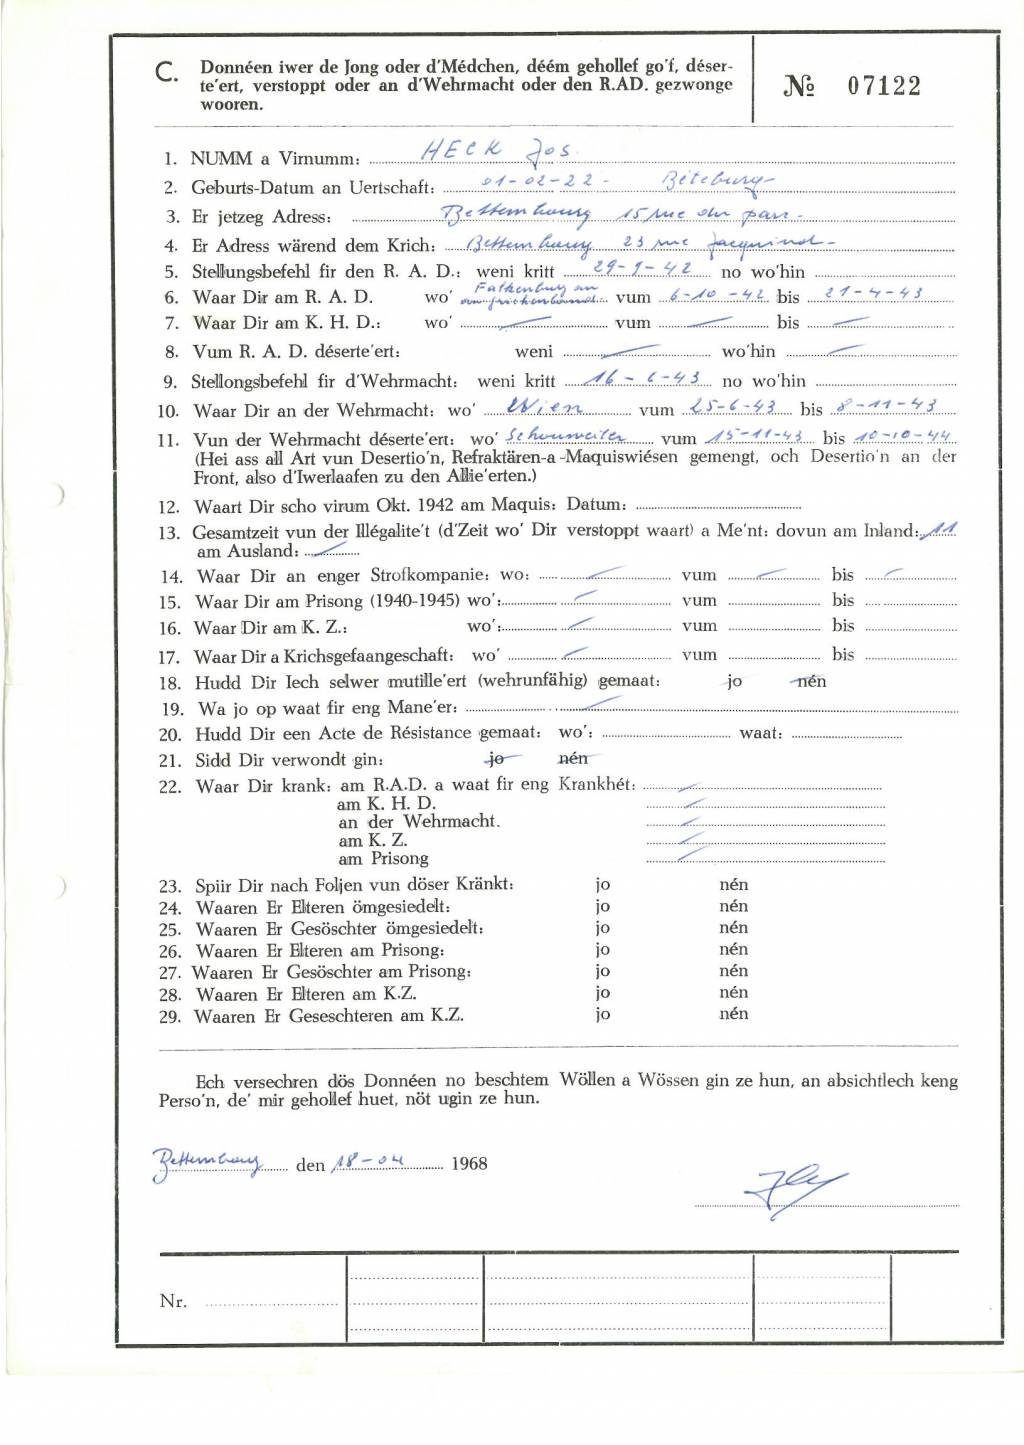 C. Donnéen iwer de Jong oder d'Médchen, déém gehollef go'f, déser-
te'ert, verstoppt oder an d'Wehrmacht oder den R.AD. gezwonge
wooren.
№ 07122
1. NUMM a Virnumm: HECK Jos.
2. Geburts-Datum an Uertschaft: 01-02-22-
3. Er jetzeg Adress: Bettembourg 15 rue du parc-
4. Er Adress wärend dem Krich: Bettembourg 23 rue Jacquinot-
5. Stellungsbefehl fir den R. A. D.: weni kritt 29-9-42 no wo'hin
6. Waar Dir am R. A. D. wo' Falkenburg vum 6-10-42 bis 21-4-43
7. Waar Dir am K. H. D.: wo' vum bis
8. Vum R. A. D. déserte'ert: weni wo'hin
9. Stellongsbefehl fir d'Wehrmacht: weni kritt 16-6-43 no wo'hin
10. Waar Dir an der Wehrmacht: wo' Wien vum 25-6-43 bis 8-11-43
11. Vun der Wehrmacht déserte'ert: wo' Schouweiler vum 15-11-43 bis 10-10-44
(Hei ass all Art vun Desertio'n, Refraktären-a-Maquiswiésen gemengt, och Desertio'n an der
Front, also d'Iwerlaafen zu den Allie'erten.)
12. Waart Dir scho virum Okt. 1942 am Maquis: Datum:
13. Gesamtzeit vun der Illégalite't (d'Zeit wo' Dir verstoppt waart) a Me'nt: dovun am Inland: 11
am Ausland:
14. Waar Dir an enger Strofkompanie: wo: vum bis
15. Waar Dir am Prisong (1940-1945) wo': vum bis
16. Waar Dir am K. Z.: wo': vum bis
17. Waar Dir a Krichsgefaangeschaft: wo' vum bis
18. Hudd Dir Iech selwer mutille'ert (wehrunfähig) gemaat: jo nén
19. Wa jo op waat fir eng Mane'er:
20. Hudd Dir een Acte de Résistance gemaat: wo': waat:
21. Sidd Dir verwondt gin: jo nén
22. Waar Dir krank: am R.A.D. a waat fir eng Krankhét:
am K. H. D.
an der Wehrmacht.
am K. Z.
am Prisong
23. Spiir Dir nach Foljen vun döser Kränkt: jo nén
24. Waaren Er Elteren ömgesiedelt: jo nén
25. Waaren Er Gesöschter ömgesiedelt: jo nén
26. Waaren Er Elteren am Prisong: jo nén
27. Waaren Er Gesöschter am Prisong: jo nén
28. Waaren Er Elteren am K.Z. jo nén
29. Waaren Er Geseschteren am K.Z. jo nén
Ech versechren dös Donnéen no beschtem Wöllen a Wössen gin ze hun, an absichtlech keng
Perso'n, de' mir gehollef huet, nöt ugin ze hun.
Bettembourg den 18-04 1968
Nr.